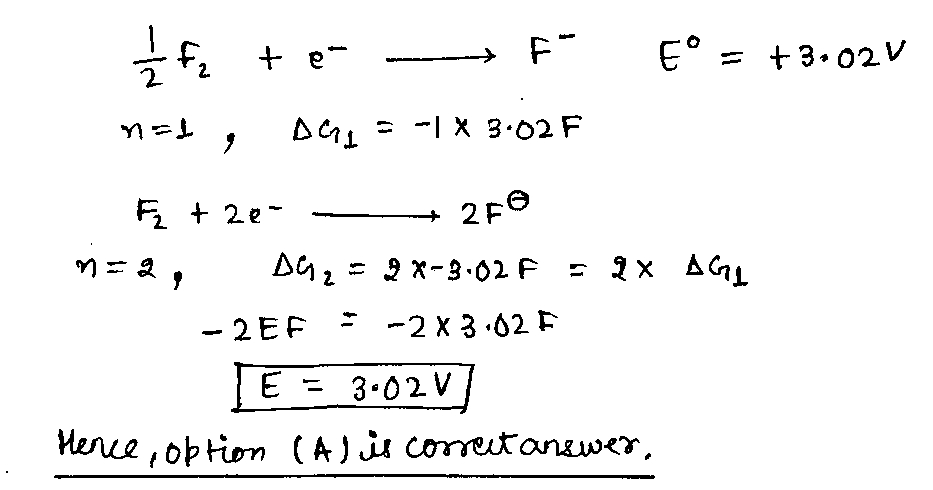 ½ F₂ + e⁻ ⟶ F⁻ E° = +3.02V
n=1, ΔG₁ = -1 × 3.02F
F₂ + 2e⁻ ⟶ 2F⊖
n=2, ΔG₂ = 2×-3.02F = 2× ΔG₁
-2EF = -2×3.02F
E = 3.02V
Hence, option (A) is correct answer.